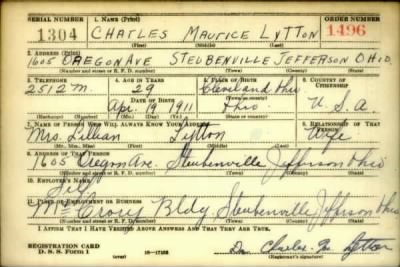 SERIAL NUMBER 1. NAME (Print) ORDER NUMBER
1304 CHARLES MAURICE LYTTON 1496
(First) (Middle) (Last)
2. ADDRESS (Print)
1605 OREGON AVE STEUBENVILLE JEFFERSON OHIO
(Number and street or R. F. D. number) (Town) (County) (State)
3. TELEPHONE 4. AGE IN YEARS 5. PLACE OF BIRTH 6. COUNTRY OF CITIZENSHIP
2512 M. 29 Cleveland Ohio
DATE OF BIRTH
Apr. 19 1911 Ohio U. S. A.
(Mo.) (Day) (Yr.)
7. NAME OF PERSON WHO WILL ALWAYS KNOW YOUR ADDRESS 8. RELATIONSHIP OF THAT PERSON
Mrs. Lillian Lytton Wife
(Mr., Mrs., Miss) (First) (Middle) (Last)
9. ADDRESS OF THAT PERSON
1605 Oregon Ave. Steubenville Jefferson Ohio
(Number and street or R. F. D. number) (Town) (County) (State)
10. EMPLOYER'S NAME
Self
11. PLACE OF EMPLOYMENT OR BUSINESS
Bldg Steubenville Jefferson Ohio
(Number and street or R. F. D. number) (Town) (County) (State)
I AFFIRM THAT I HAVE VERIFIED ABOVE ANSWERS AND THAT THEY ARE TRUE.
REGISTRATION CARD
D. S. S. Form 1
Dr. Charles M. Lytton
(Registrant's signature)